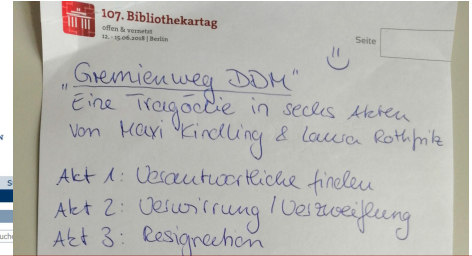 107. Bibliothekartag
offen & vernetzt
12. - 15.06.2018 | Berlin
Seite
"Gremienweg DDM"
Eine Tragödie in sechs Akten
von Maxi Kindling & Laura Rothfritz
Akt 1: Verantwortliche finden
Akt 2: Verwirrung / Verzweiflung
Akt 3: Resignation